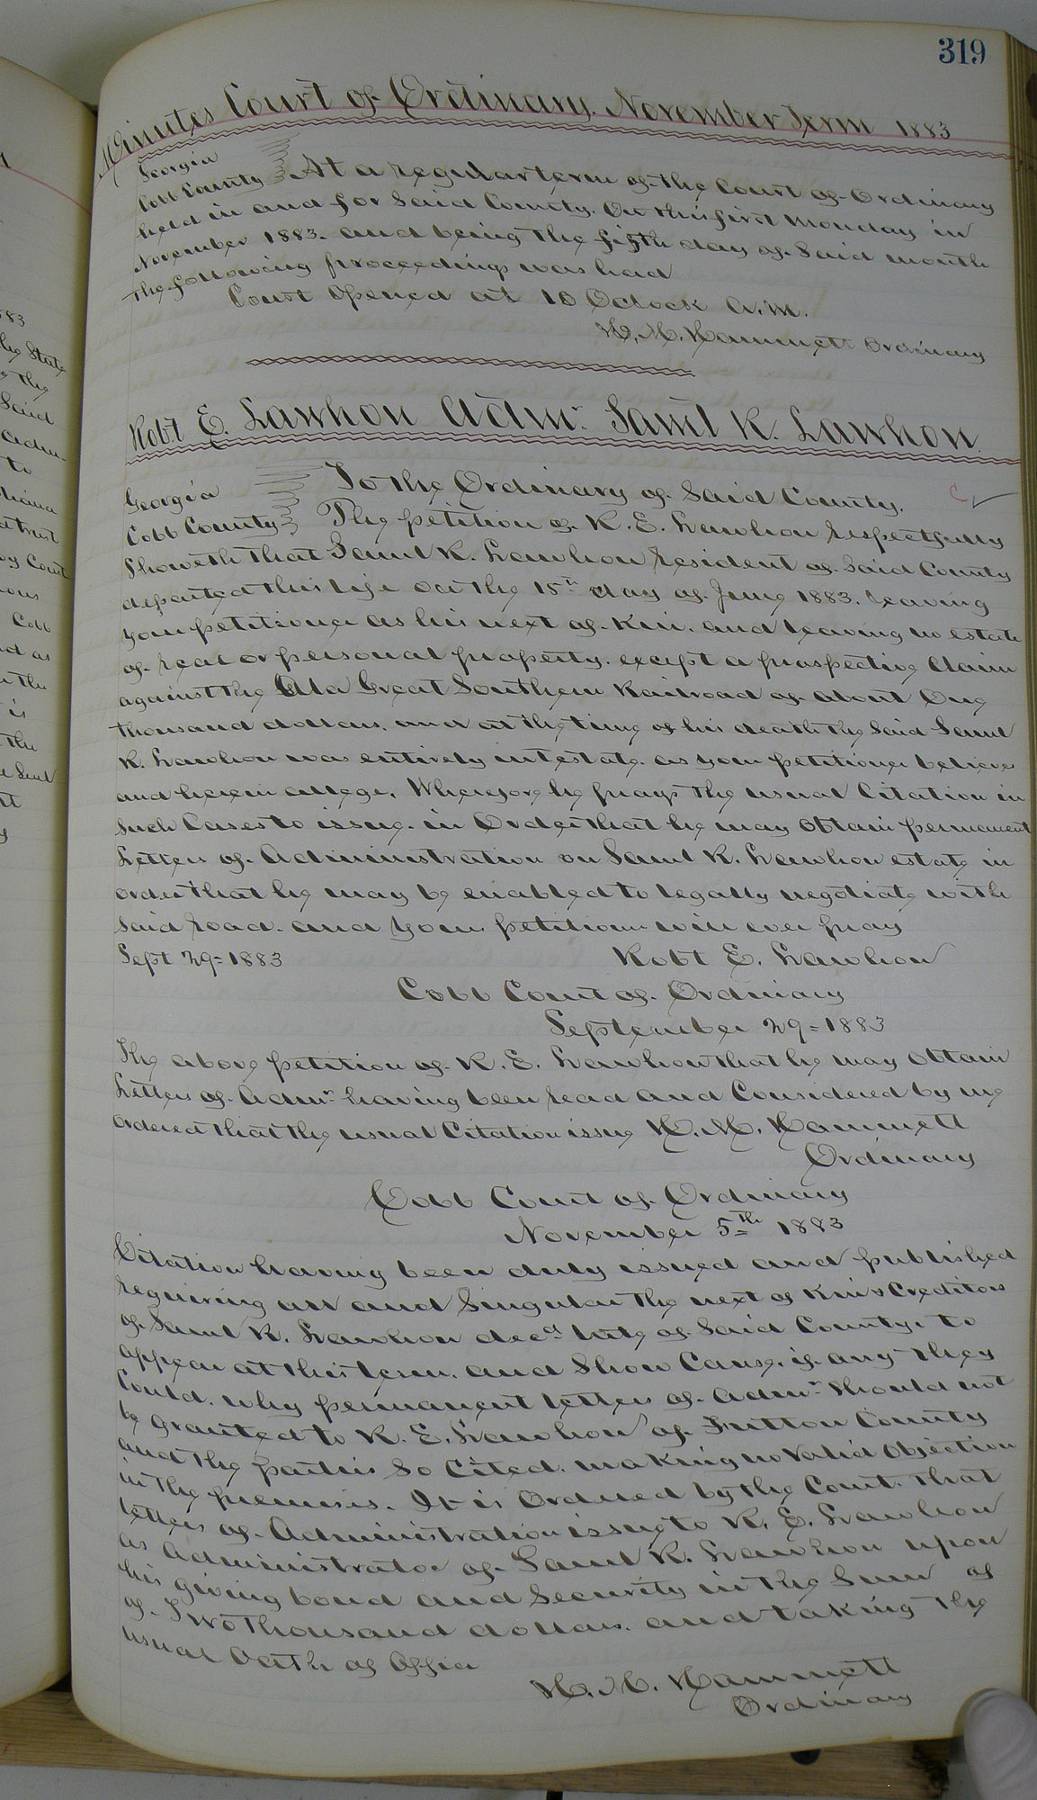 319
Minutes Court of Ordinary. November Term 1883
Georgia
Cobb County At a regular term of the Court of Ordinary
held in and for Said County. On this first Monday in
November 1883. and being the fifth day of Said month
the following proceedings was had
Court Opened at 10 Oclock A.M.
H. M. Hammett Ordinary
Robt E. Lawhon Admr. Saml K. Lawhon
Georgia To the Ordinary of Said County.
Cobb County The petition of R. E. Lawhon respectfully
Showeth that Saml K. Lawhon resident of Said County
departed this life on the 15th day of June 1883. leaving
your petitioner as his next of Kin. and leaving no estate
of real or personal property. except a prospective Claim
against the Ala Great Southern Railroad of about One
thousand dollars. and at the time of his death the Said Saml
K. Lawhon was entirely intestate. as your petitioner believes
and herein allege. Wherefore he prays the usual Citation in
Such Cases to issue. in Order that he may Obtain permanent
Letters of Administration on Saml K. Lawhon estate in
order that he may be enabled to legally negotiate with
Said road. and your petitioner will ever pray
Sept 29= 1883 Robt E. Lawhon
Cobb Court of Ordinary
September 29= 1883
The above petition of R. E. Lawhon that he may Obtain
Letters of Admr having been read and Considered by me
Ordered that the usual Citation issue H. M. Hammett
Ordinary
Cobb Court of Ordinary
November 5th 1883
Citation having been duly issued and published
requiring all and Singular the next of Kin & Creditors
of Saml K. Lawhon decd late of Said County. to
appear at this term. and Show Cause, if any they
Could. why permanent letters of Admr should not
be granted to R. E. Lawhon of Fulton County
and the parties So Cited. making no Valid Objection
in the premises. It is Ordered by the Court. that
letters of Administration issue to R. E. Lawhon
as Administrator of Saml K. Lawhon upon
his giving bond and Security in the Sum of
of Two Thousand dollars. and taking the
usual Oath of Office
H. M. Hammett
Ordinary